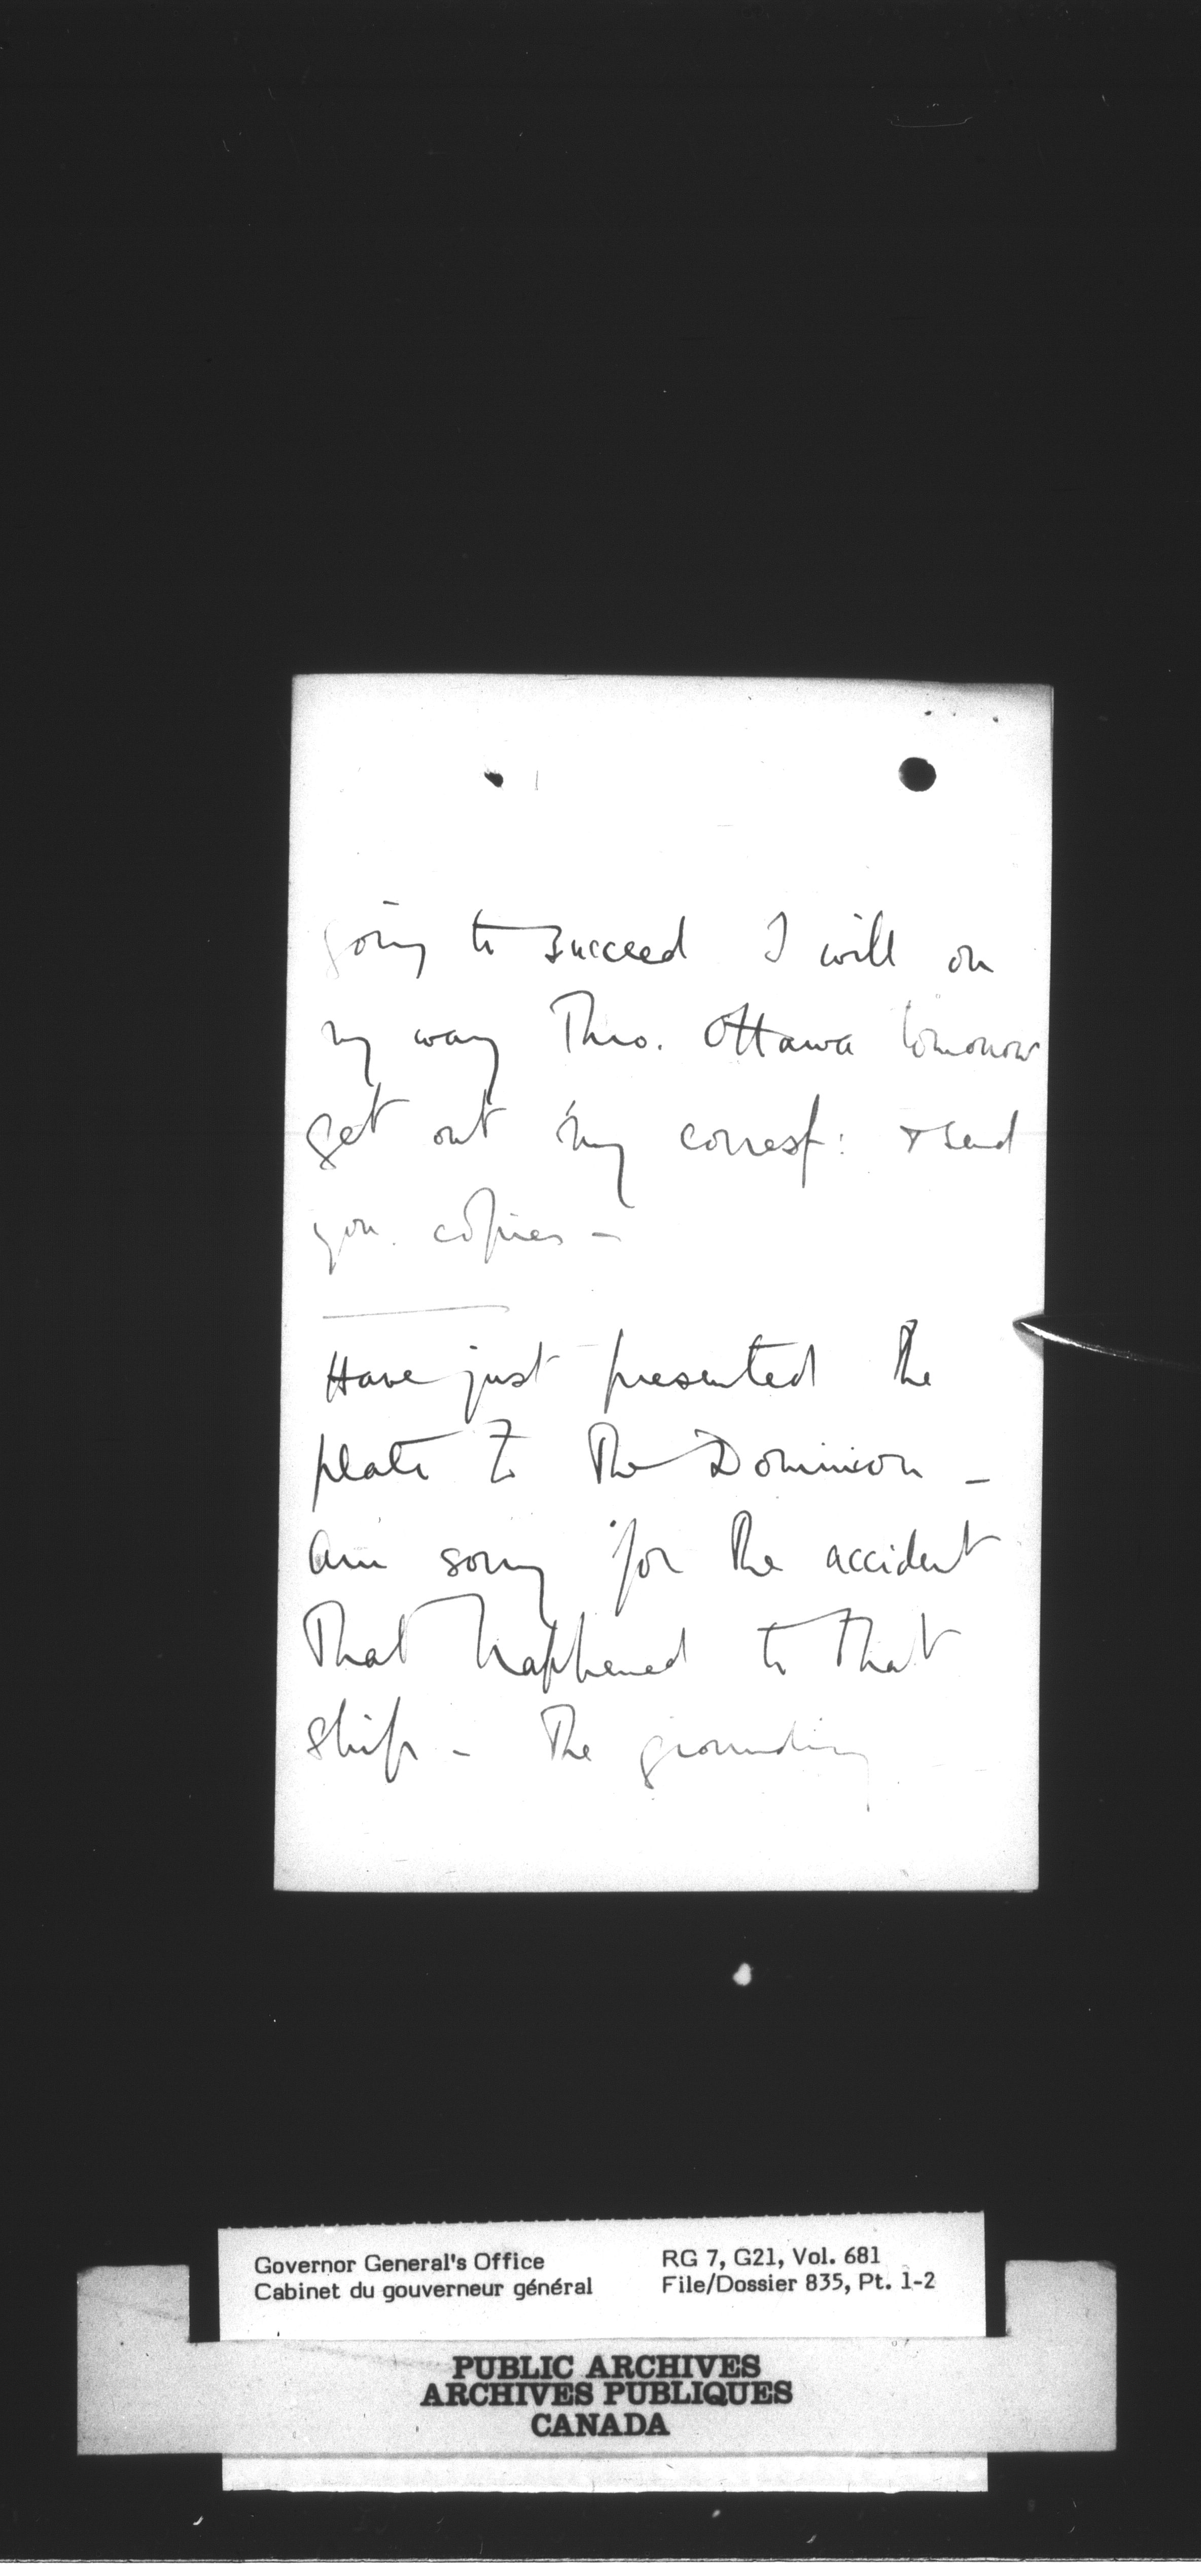 going to succeed I will on
my way thro. Ottawa tomorrow
get out my corresp: & send
you copies –
Have just presented the
plate to the Dominion –
am sorry for the accident
that happened to that
ship – The grounding
Governor General's Office
Cabinet du gouverneur général
RG 7, G21, Vol. 681
File/Dossier 835, Pt. 1-2
PUBLIC ARCHIVES
ARCHIVES PUBLIQUES
CANADA